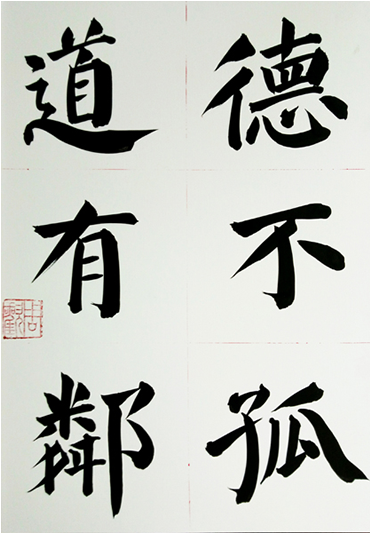 德不孤
道有鄰